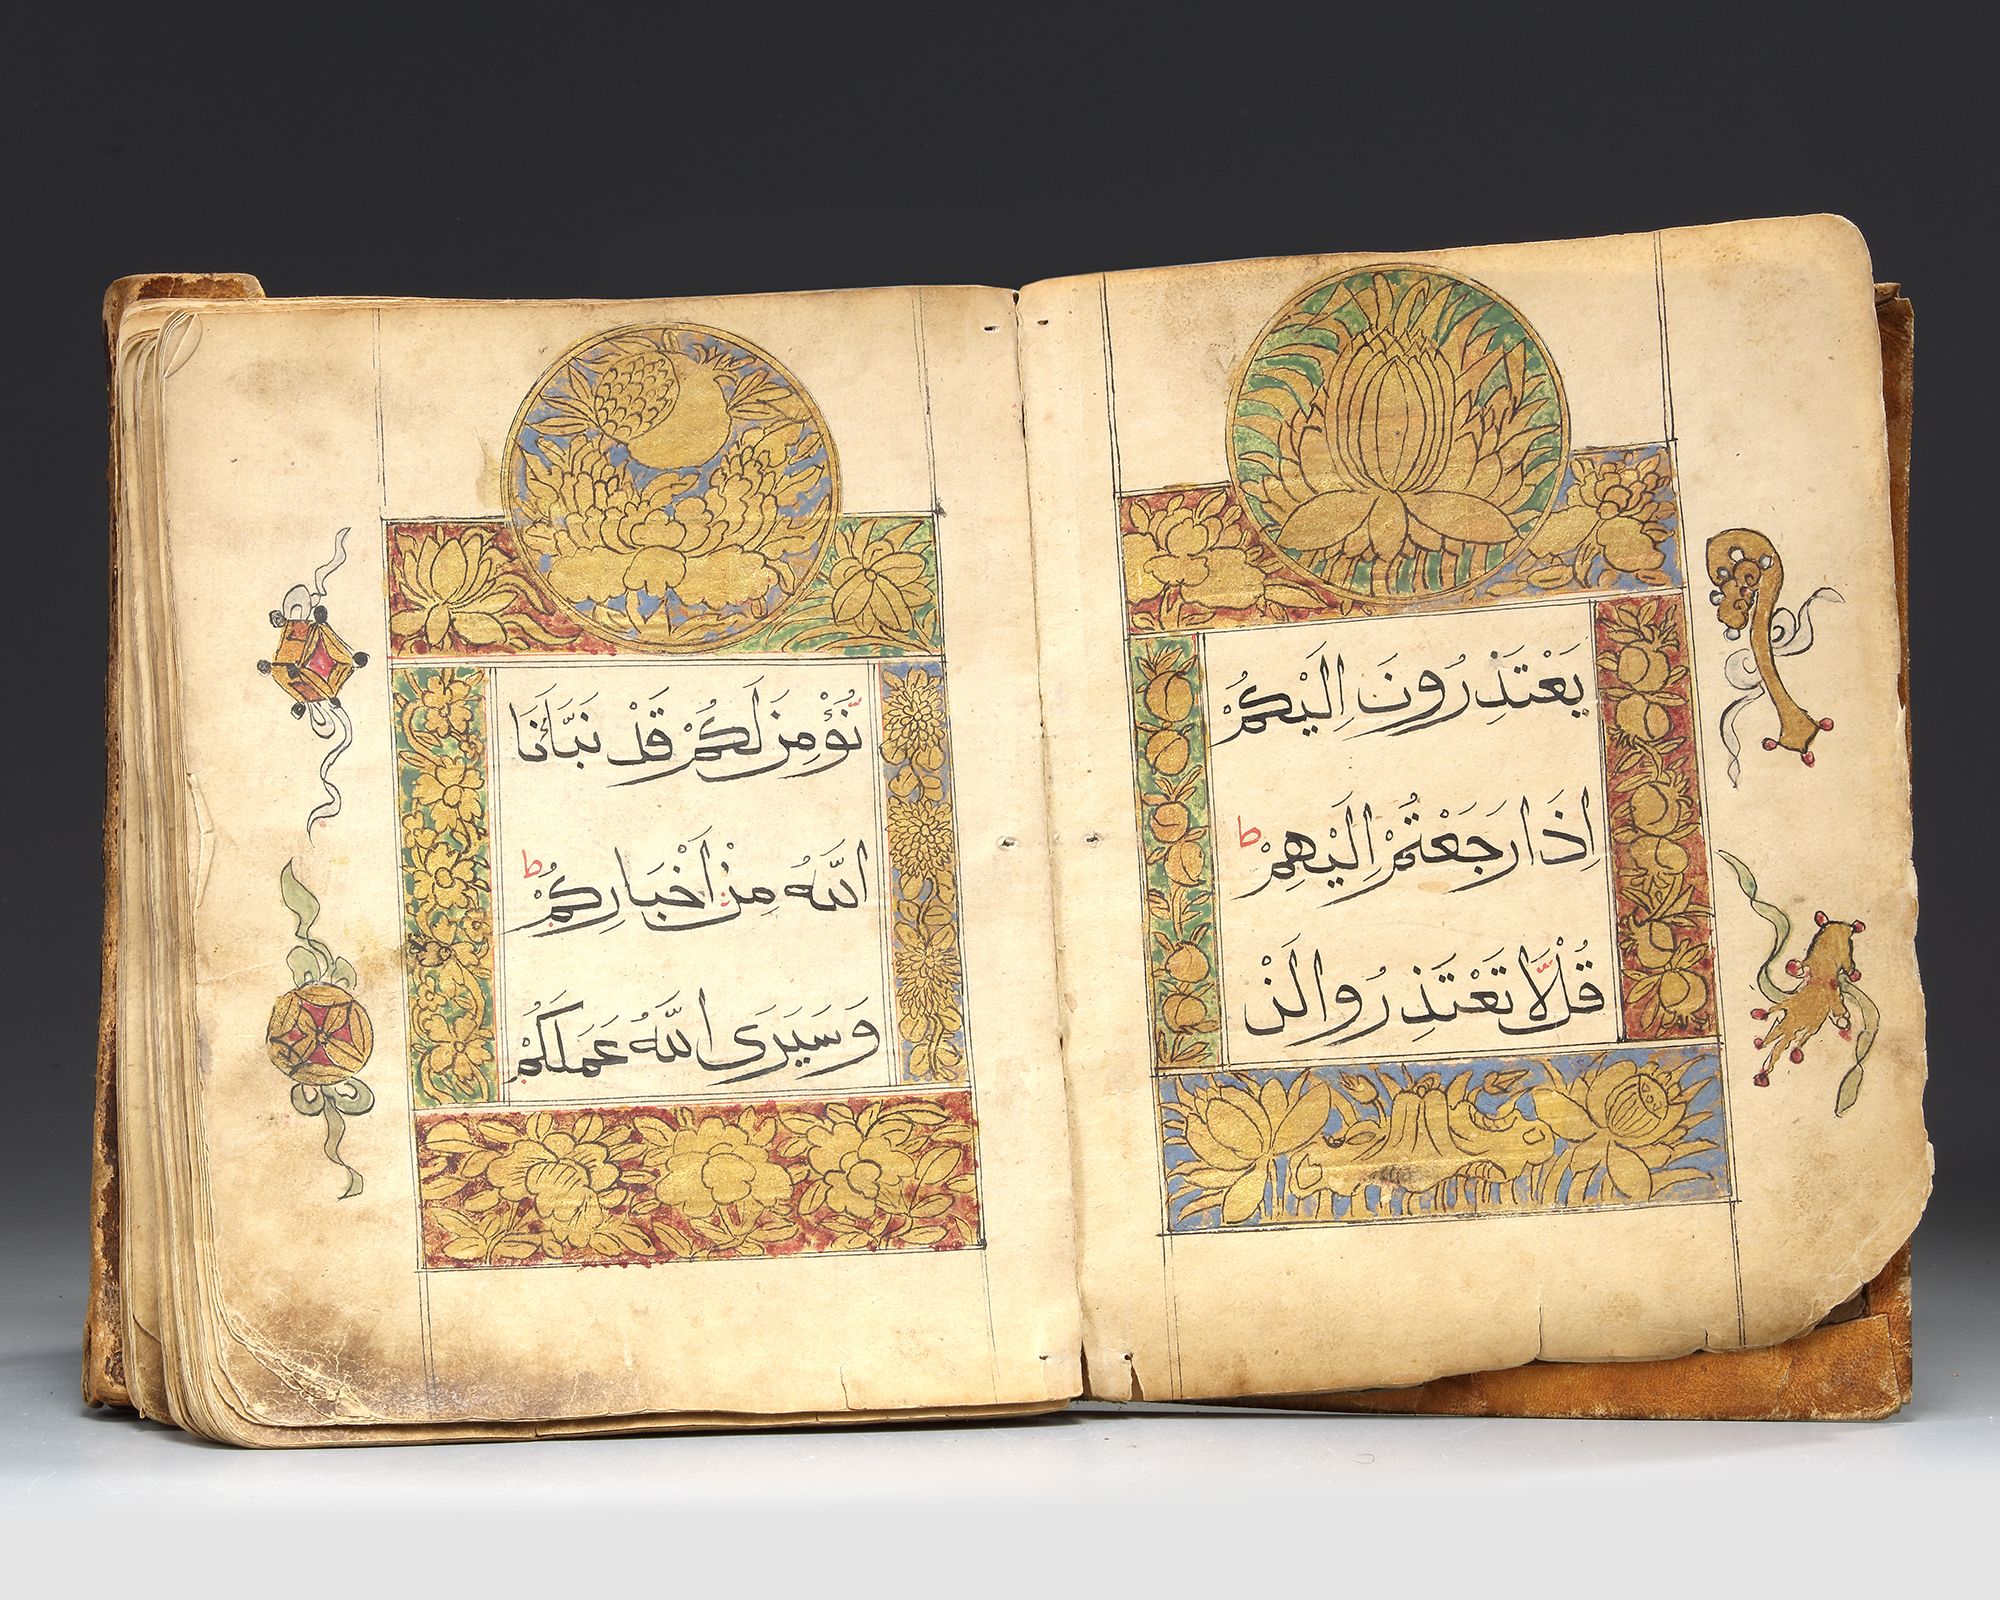 يَعْتَذِرُونَ اِلَيْكُمْ
اِذَا رَجَعْتُمْ اِلَيْهِمْ ط
قُلْ لَّا تَعْتَذِرُوا لَنْ
نُّؤْمِنَ لَكُمْ قَدْ نَبَّأَنَا
اللّٰهُ مِنْ اَخْبَارِكُمْ ط
وَسَيَرَى اللّٰهُ عَمَلَكُمْ